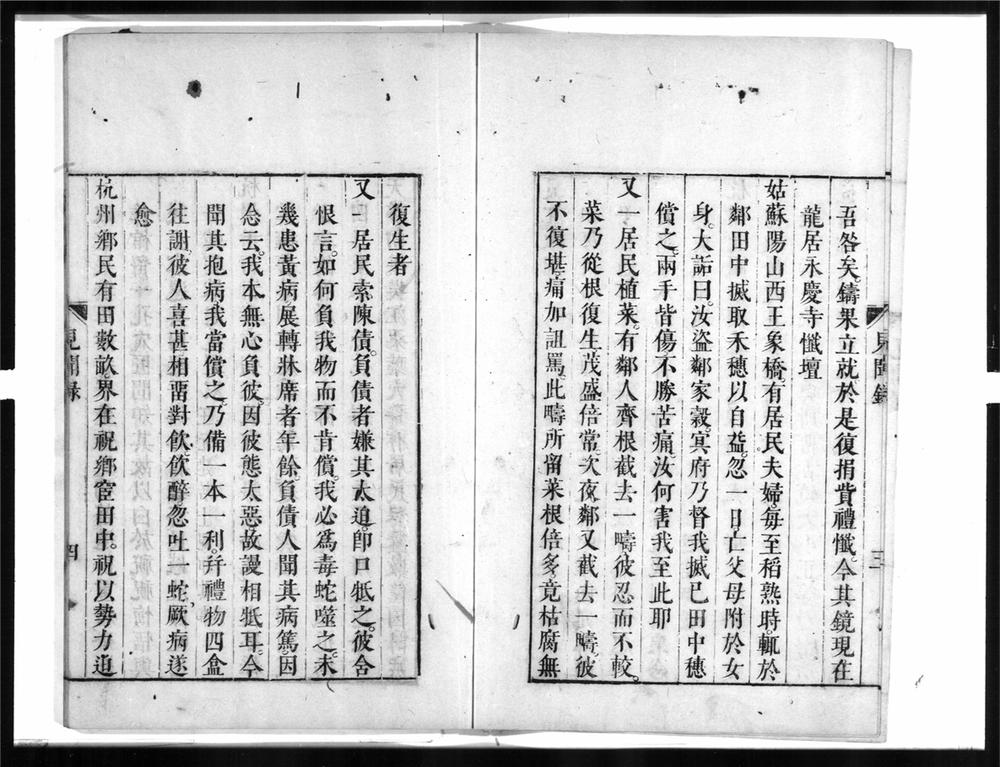 吾咎矣。鑄果立就。於是復捐貲禮懺。今其鏡現在
龍居永慶寺懺壇
姑蘇陽山西王象橋。有居民夫婦。每至稻熟時。輒於
鄰田中搣取禾穗以自益。忽一日。亡父母附於女
身。大詬曰。汝盜鄰家穀。冥府乃督我搣己田中穗
償之。兩手皆傷。不勝苦痛。汝何害我至此耶
又一居民植菜。有鄰人齊根截去一疇。彼忍而不較。
菜乃從根復生。茂盛倍常。次夜。鄰又截去一疇。彼
不復堪。痛加詛罵。此疇所留菜根倍多。竟枯腐無
見聞錄
三
復生者
又一居民索陳債。負債者嫌其太迫。卽口牴之。彼含
恨言。如何負我物而不肯償。我必爲毒蛇噬之。未
幾患黃病。展轉牀席者年餘。負債人聞其病篤。因
念云。我本無心負彼。因彼態太惡。故謾相牴耳。今
聞其抱病。我當償之。乃備一本一利。并禮物四盒
往謝。彼人喜甚。相畱對飲。飲醉。忽吐一蛇。厥病遂
愈
杭州鄉民有田數畝。界在祝鄉宦田中。祝以勢力迫
見聞錄
四